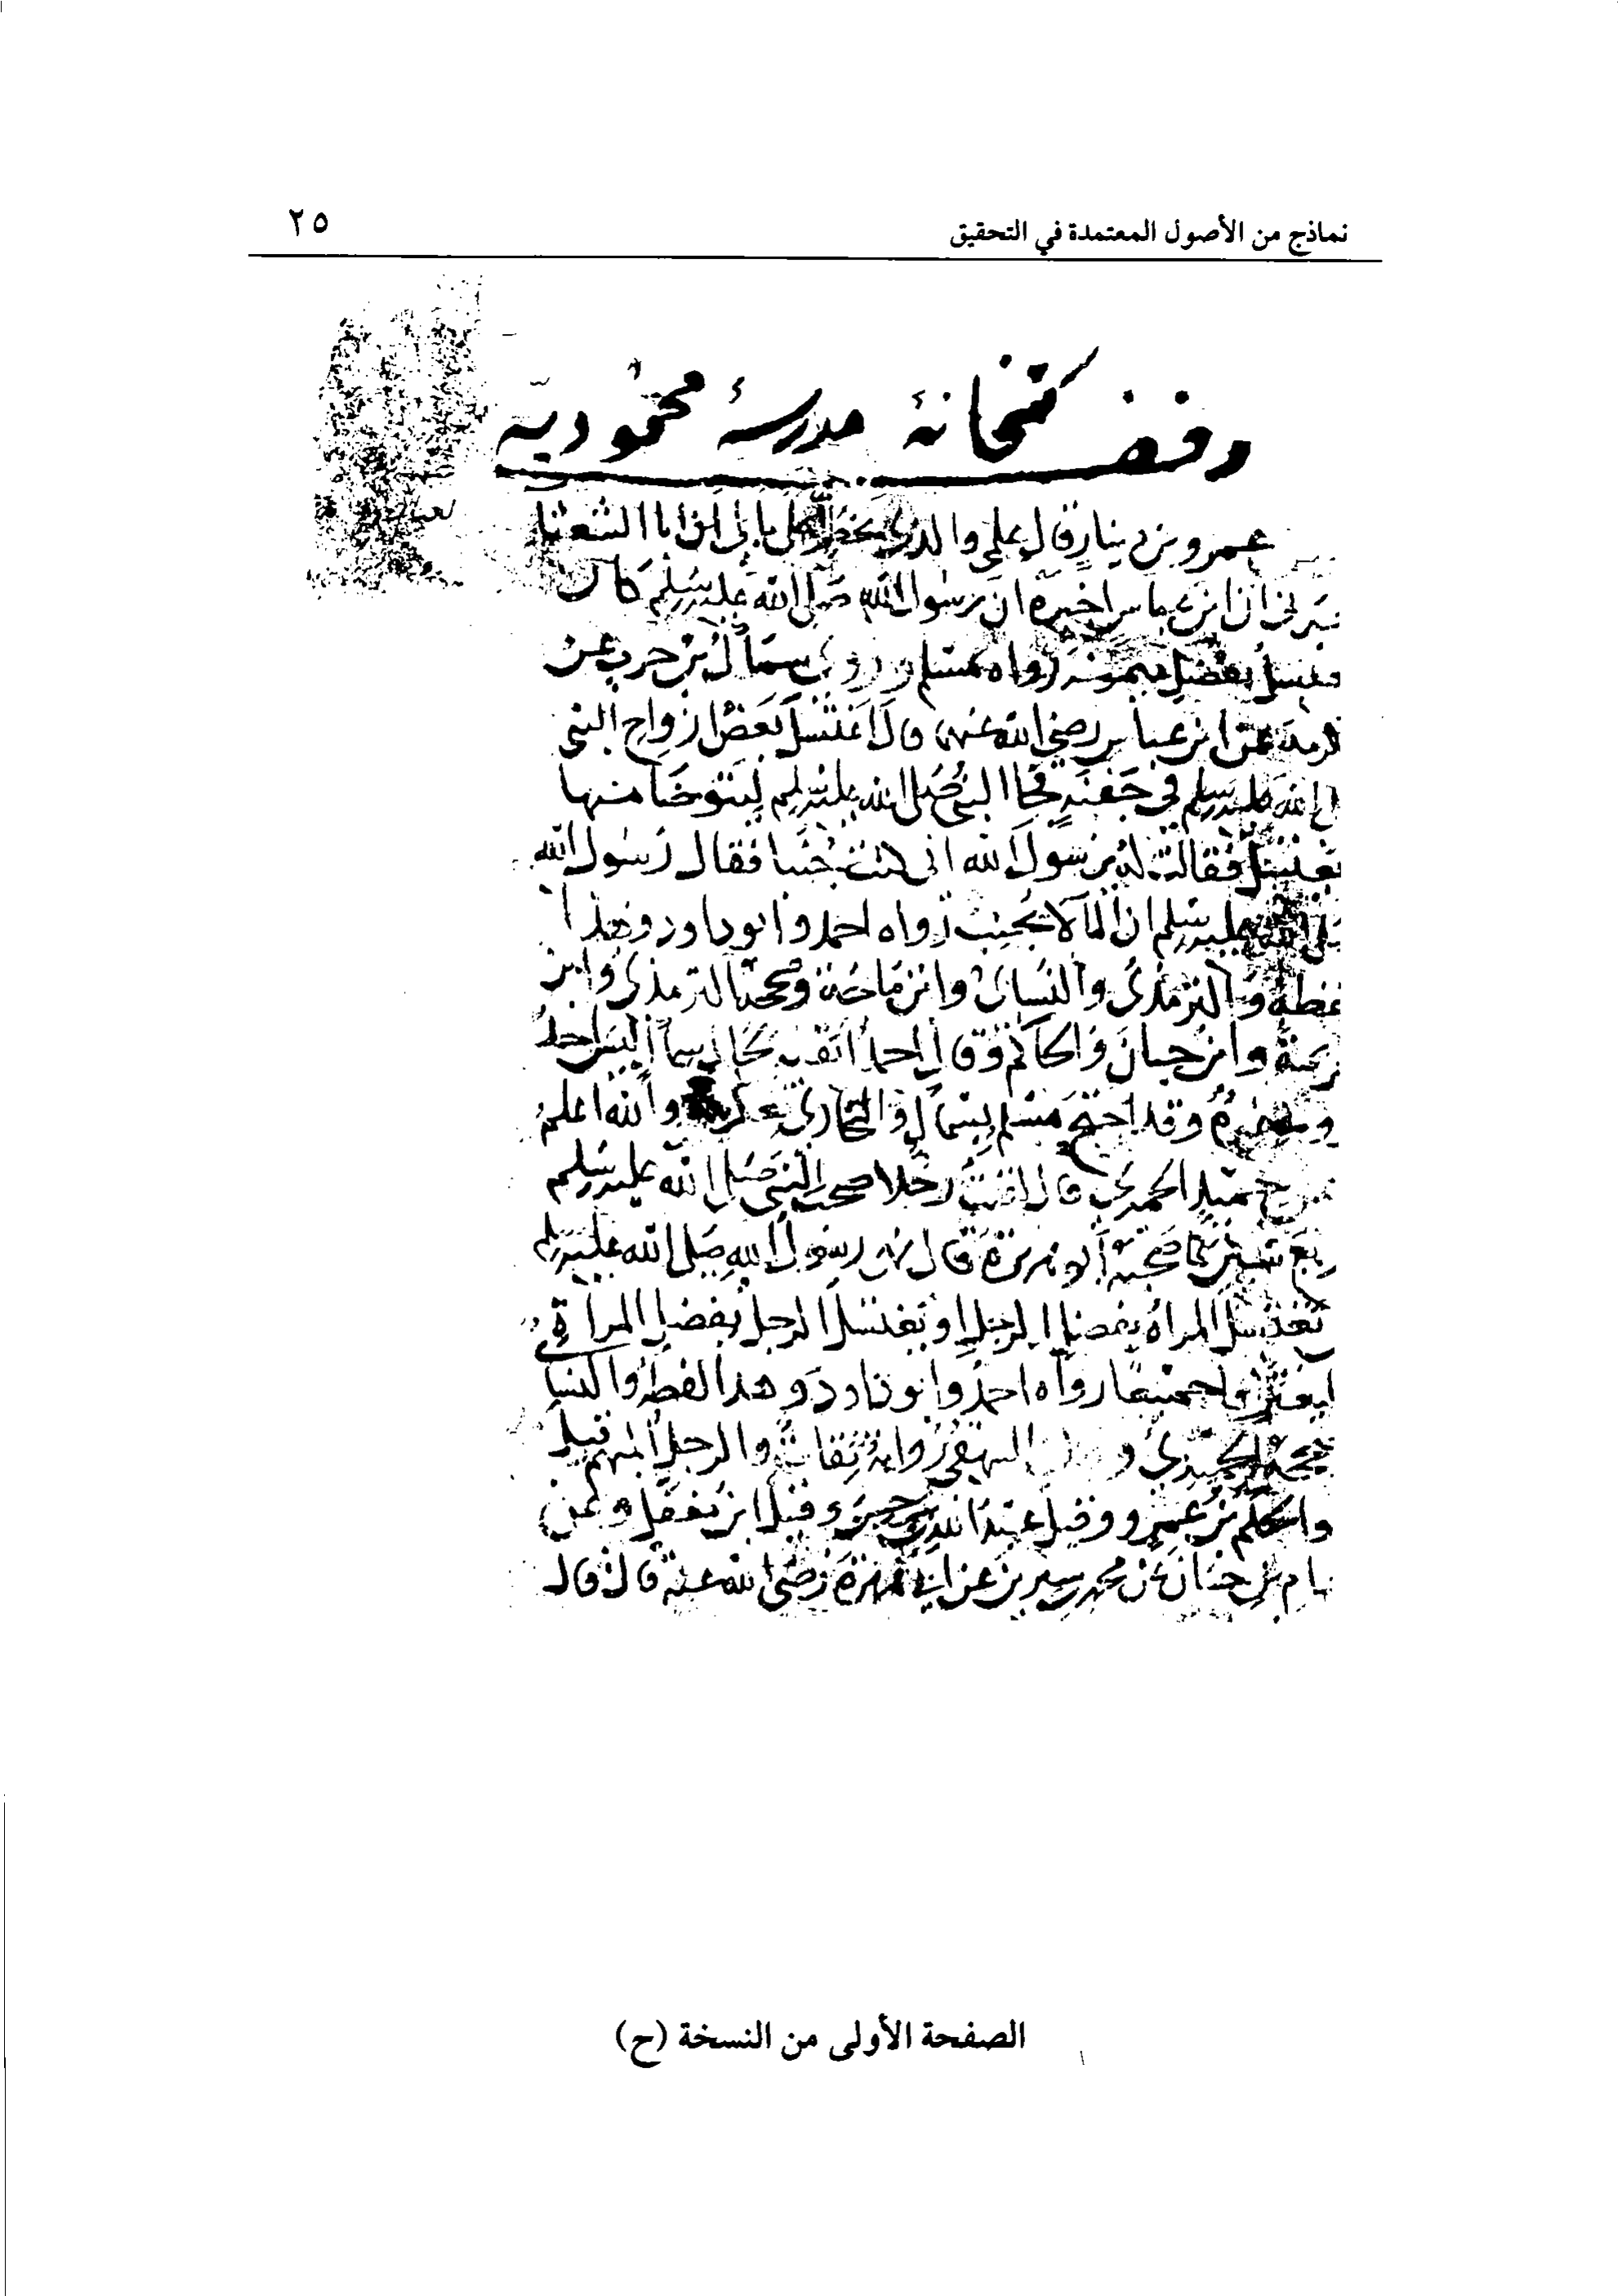 نماذج من الأصول المعتمدة في التحقيق
٢٥
وقف كتبخانهٔ مدرسهٔ محموديه
عمرو بن دينار قال علمي والذي يخطر على بالي ان ابا الشعثا
ان ابن عباس اخبره ان رسول الله صلى الله عليه وسلم كان
بفضل ميمونة رواه مسلم وروى سماك بن حرب عن
عن ابن عباس رضي الله عنهما قال اغتسل بعض ازواج النبي
الله عليه وسلم في جفنة فجا النبي صلى الله عليه وسلم ليتوضا منها
فقالت له يرسول الله اني كنت جنبا فقال رسول الله
الله عليه وسلم ان الما لا يجنب رواه احمد وابو داود وهذا
لفظه والترمذي والنسائي وابن ماجة وصححه الترمذي وابن
خزيمة وابن حبان والحاكم وقال احمد اتقيه لحال سماك ليس احد
وقد احتج مسلم بسماك والبخاري بعكرمة والله اعلم
حميد الحميري قال لقيت رجلا صحب النبي صلى الله عليه وسلم
اربع سنين كما صحبه ابو هريرة قال نهى رسول الله صلى الله عليه وسلم
تغتسل المراة بفضل الرجل او يغتسل الرجل بفضل المراة
وليغترفا جميعا رواه احمد وابو داود وهذا لفظه والنسا
الحميدي وقال البيهقي رواته ثقات والرجل المبهم قيل
الحكم بن عمرو وقيل عبد الله بن سرجس وقيل ابن مغفل وعن
هشام بن حسان عن محمد بن سيرين عن ابي هريرة رضي الله عنه قال قال
الصفحة الأولى من النسخة (ح)